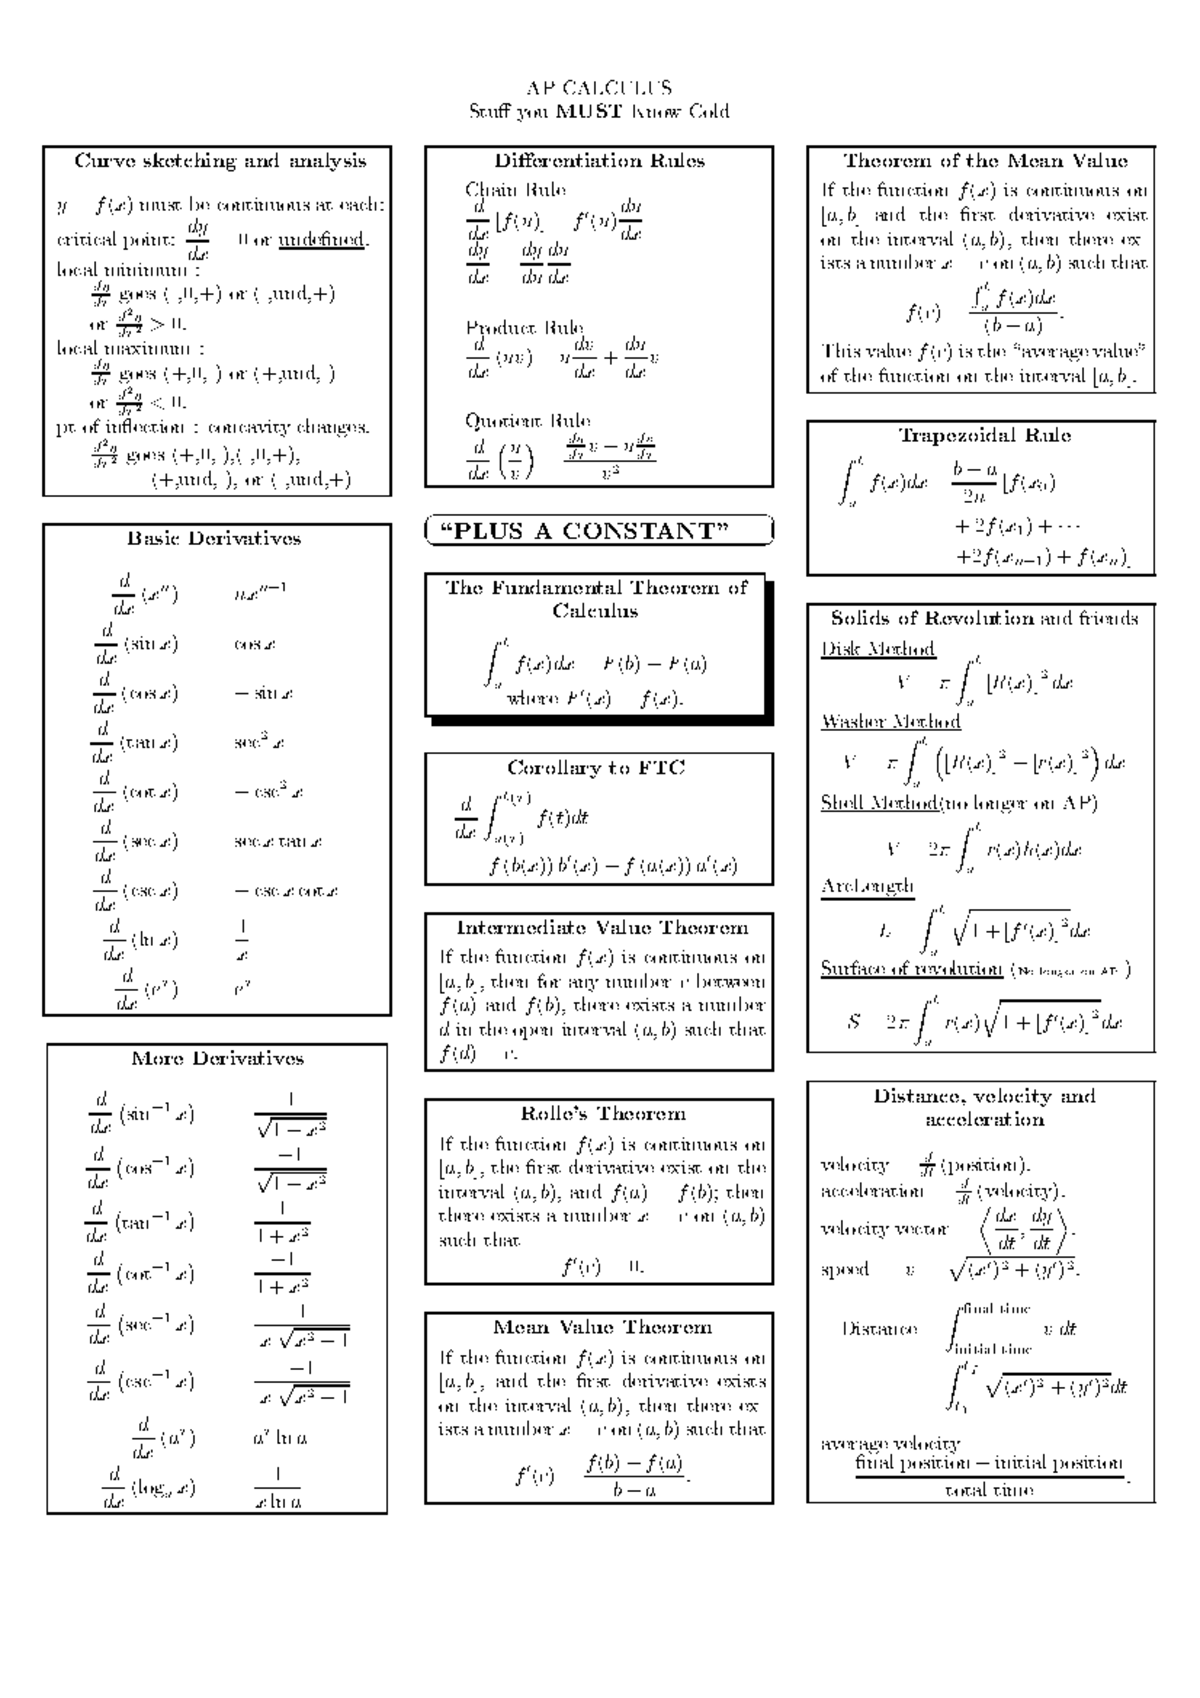 AP CALCULUS
Stuff you MUST Know Cold
Curve sketching and analysis
y f(x) must be continuous at each:
critical point: dy/dx 0 or undefined.
local minimum :
dy/dx goes ( ,0,+) or ( ,und,+)
or d²y/dx² > 0.
local maximum :
dy/dx goes (+,0, ) or (+,und, )
or d²y/dx² < 0.
pt of inflection : concavity changes.
d²y/dx² goes (+,0, ),( ,0,+),
(+,und, ), or ( ,und,+)
Basic Derivatives
d/dx (xⁿ) nxⁿ⁻¹
d/dx (sin x) cos x
d/dx (cos x) − sin x
d/dx (tan x) sec² x
d/dx (cot x) − csc² x
d/dx (sec x) sec x tan x
d/dx (csc x) − csc x cot x
d/dx (ln x) 1/x
d/dx (eˣ) eˣ
More Derivatives
d/dx (sin⁻¹ x) 1/√(1 − x²)
d/dx (cos⁻¹ x) −1/√(1 − x²)
d/dx (tan⁻¹ x) 1/(1 + x²)
d/dx (cot⁻¹ x) −1/(1 + x²)
d/dx (sec⁻¹ x) 1/(x √(x² − 1))
d/dx (csc⁻¹ x) −1/(x √(x² − 1))
d/dx (aˣ) aˣ ln a
d/dx (logₐ x) 1/(x ln a)
Differentiation Rules
Chain Rule
d/dx [f(u)] f′(u) du/dx
dy/dx dy/du du/dx
Product Rule
d/dx (uv) u dv/dx + du/dx v
Quotient Rule
d/dx (u/v) (du/dx v − u dv/dx)/v²
“PLUS A CONSTANT”
The Fundamental Theorem of
Calculus
∫ₐᵇ f(x)dx F(b) − F(a)
where F′(x) f(x).
Corollary to FTC
d/dx ∫_{a(x)}^{b(x)} f(t)dt
f(b(x)) b′(x) − f(a(x)) a′(x)
Intermediate Value Theorem
If the function f(x) is continuous on
[a, b], then for any number c between
f(a) and f(b), there exists a number
d in the open interval (a, b) such that
f(d) c.
Rolle’s Theorem
If the function f(x) is continuous on
[a, b], the first derivative exist on the
interval (a, b), and f(a) f(b); then
there exists a number x c on (a, b)
such that
f′(c) 0.
Mean Value Theorem
If the function f(x) is continuous on
[a, b], and the first derivative exists
on the interval (a, b), then there ex
ists a number x c on (a, b) such that
f′(c) (f(b) − f(a))/(b − a).
Theorem of the Mean Value
If the function f(x) is continuous on
[a, b] and the first derivative exist
on the interval (a, b), then there ex
ists a number x c on (a, b) such that
f(c) ∫ₐᵇ f(x)dx/(b − a).
This value f(c) is the “average value”
of the function on the interval [a, b].
Trapezoidal Rule
∫ₐᵇ f(x)dx (b − a)/2n [f(x₀)
+ 2f(x₁) + ···
+2f(xₙ₋₁) + f(xₙ)]
Solids of Revolution and friends
Disk Method
V π ∫ₐᵇ [R(x)]² dx
Washer Method
V π ∫ₐᵇ ([R(x)]² − [r(x)]²) dx
Shell Method(no longer on AP)
V 2π ∫ₐᵇ r(x)h(x)dx
ArcLength
L ∫ₐᵇ √(1 + [f′(x)]²)dx
Surface of revolution (No longer on AP)
S 2π ∫ₐᵇ r(x)√(1 + [f′(x)]²)dx
Distance, velocity and
acceleration
velocity d/dt (position).
acceleration d/dt (velocity).
velocity vector ⟨dx/dt, dy/dt⟩.
speed v √((x′)² + (y′)²).
Distance ∫_{initial time}^{final time} v dt
∫_{t₀}^{t_f} √((x′)² + (y′)²)dt
average velocity
final position − initial position
total time .